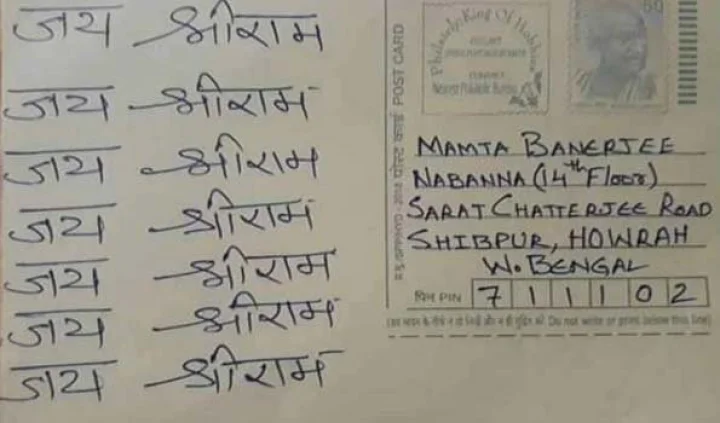 जय श्रीराम
जय श्रीराम
जय श्रीराम
जय श्रीराम
जय श्रीराम
जय श्रीराम
जय श्रीराम
पोस्ट कार्ड POST CARD
Philately King Of Hobbies
50
MAMTA BANERJEE
NABANNA (14th Floor)
SARAT CHATTERJEE ROAD
SHIBPUR, HOWRAH
W. BENGAL
पिन PIN 711102
Do not write or print below this line